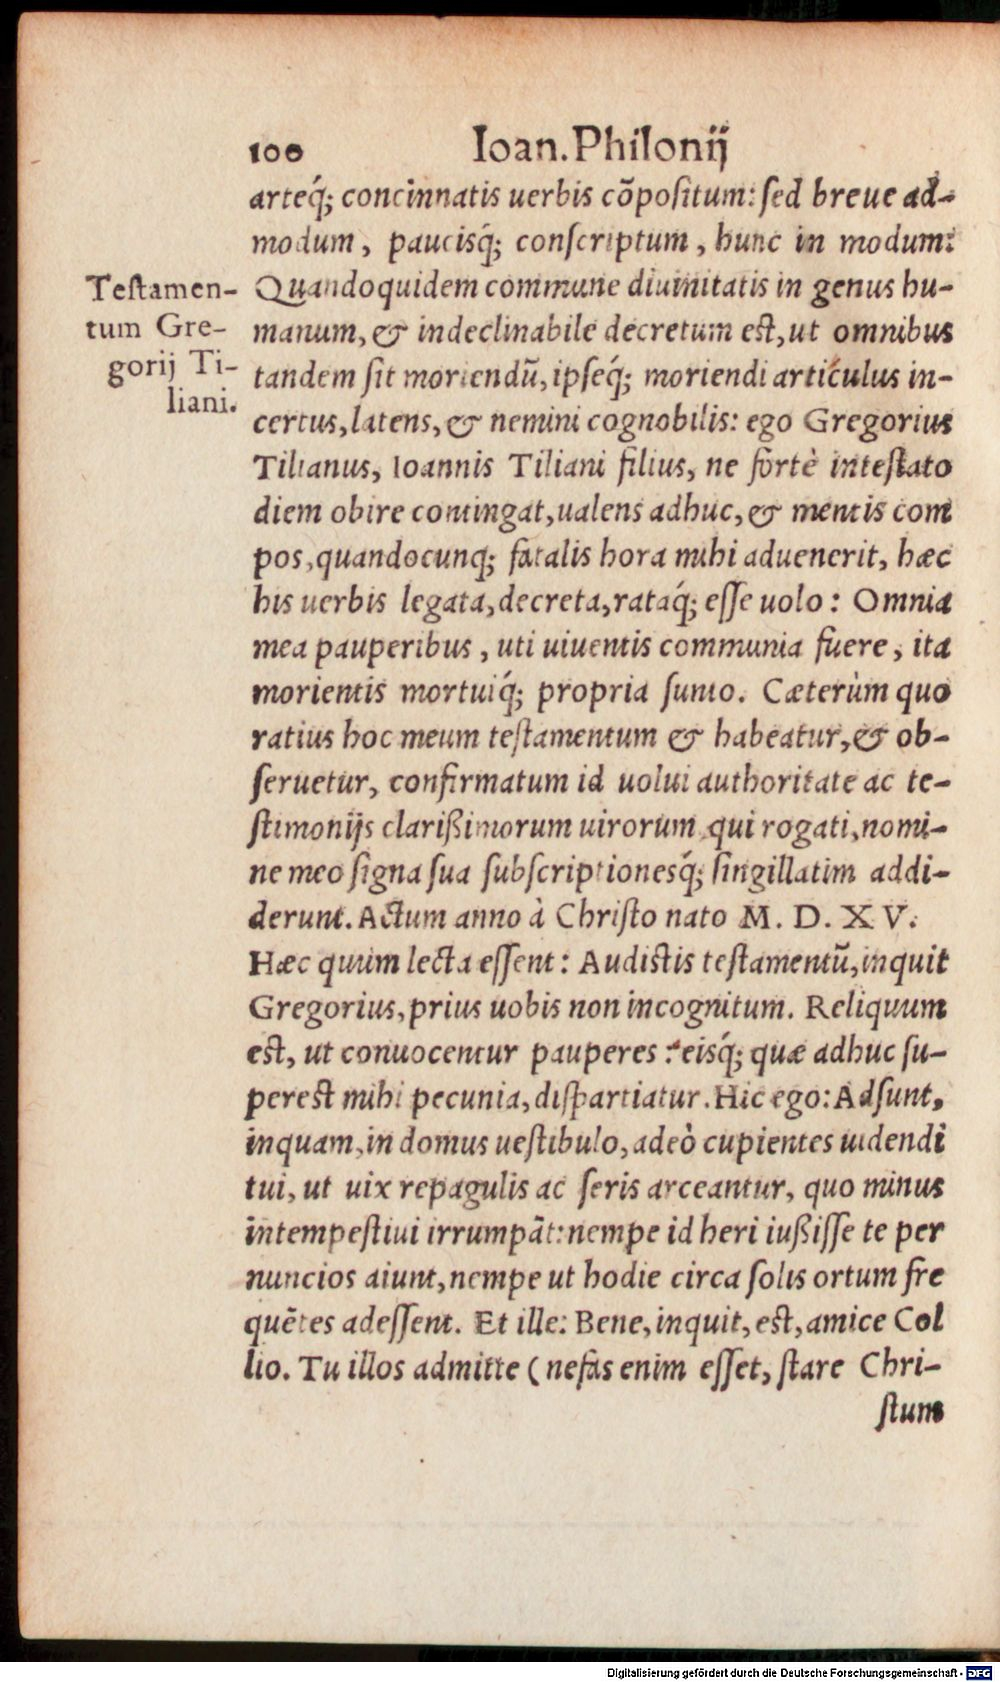 100 Ioan. Philonij
arteq́; concinnatis uerbis cõpositum: sed breue ad-
modum, paucisq́; conscriptum, hunc in modum:
Testamen-
tum Gre-
gorij Ti-
liani.
Quandoquidem commune diuinitatis in genus hu-
manum, & indeclinabile decretum est, ut omnibus
tandem sit moriendũ, ipseq́; moriendi articulus in-
certus, latens, & nemini cognobilis: ego Gregorius
Tilianus, Ioannis Tiliani filius, ne fortè intestato
diem obire contingat, ualens adhuc, & mentis com
pos, quandocunq; fatalis hora mihi aduenerit, hæc
his uerbis legata, decreta, rataq́; esse uolo: Omnia
mea pauperibus, uti uiuentis communia fuere, ita
morientis mortuiq́; propria sunto. Cæterùm quo
ratius hoc meum testamentum & habeatur, & ob-
seruetur, confirmatum id uolui authoritate ac te-
stimonijs clarißimorum uirorum qui rogati, nomi-
ne meo signa sua subscriptionesq́; singillatim addi-
derunt. Actum anno à Christo nato M. D. XV.
Hæc quum lecta essent: Audistis testamentũ, inquit
Gregorius, prius uobis non incognitum. Reliquum
est, ut conuocentur pauperes: eisq́; quæ adhuc su-
perest mihi pecunia, dispartiatur. Hic ego: Adsunt,
inquam, in domus uestibulo, adeò cupientes uidendi
tui, ut uix repagulis ac seris arceantur, quo minus
intempestiui irrumpãt: nempe id heri iußisse te per
nuncios aiunt, nempe ut hodie circa solis ortum fre
quẽtes adessent. Et ille: Bene, inquit, est, amice Col
lio. Tu illos admitte (nefas enim esset, stare Chri-
stum
Digitalisierung gefördert durch die Deutsche Forschungsgemeinschaft - DFG